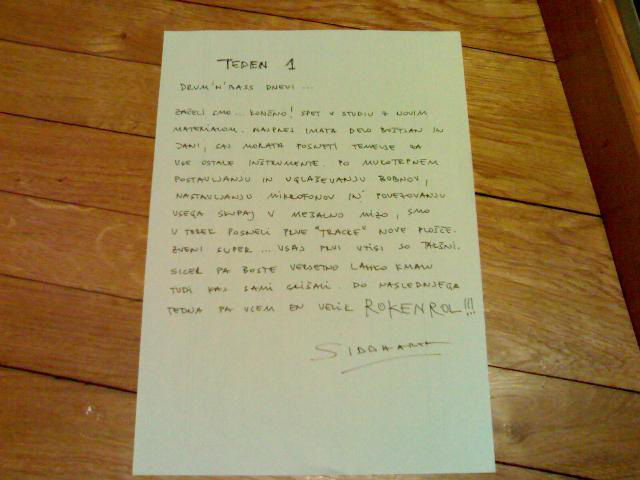 TEDEN 1
DRUM'N'BASS DNEVI ...
ZAČELI SMO ... KONČNO! SPET V STUDIU Z NOVIM
MATERIALOM. NAJPREJ IMATA DELO BOŠTJAN IN
JANI, SAJ MORATA POSNETI TEMELJE ZA
VSE OSTALE INŠTRUMENTE. PO MUKOTRPNEM
POSTAVLJANJU IN UGLAŠEVANJU BOBNOV,
NASTAVLJANJU MIKROFONOV IN POVEZOVANJU
VSEGA SKUPAJ V MEŠALNO MIZO, SMO
V TOREK POSNELI PRVE "TRACKE" NOVE PLOŠČE.
ZVENI SUPER ... VSAJ PRVI VTISI SO TAKŠNI.
SICER PA BOSTE VERJETNO LAHKO KMALU
TUDI KAJ SAMI SLIŠALI. DO NASLEDNJEGA
TEDNA PA VSEM EN VELIK ROKENROL!!!
SIDDHARTA